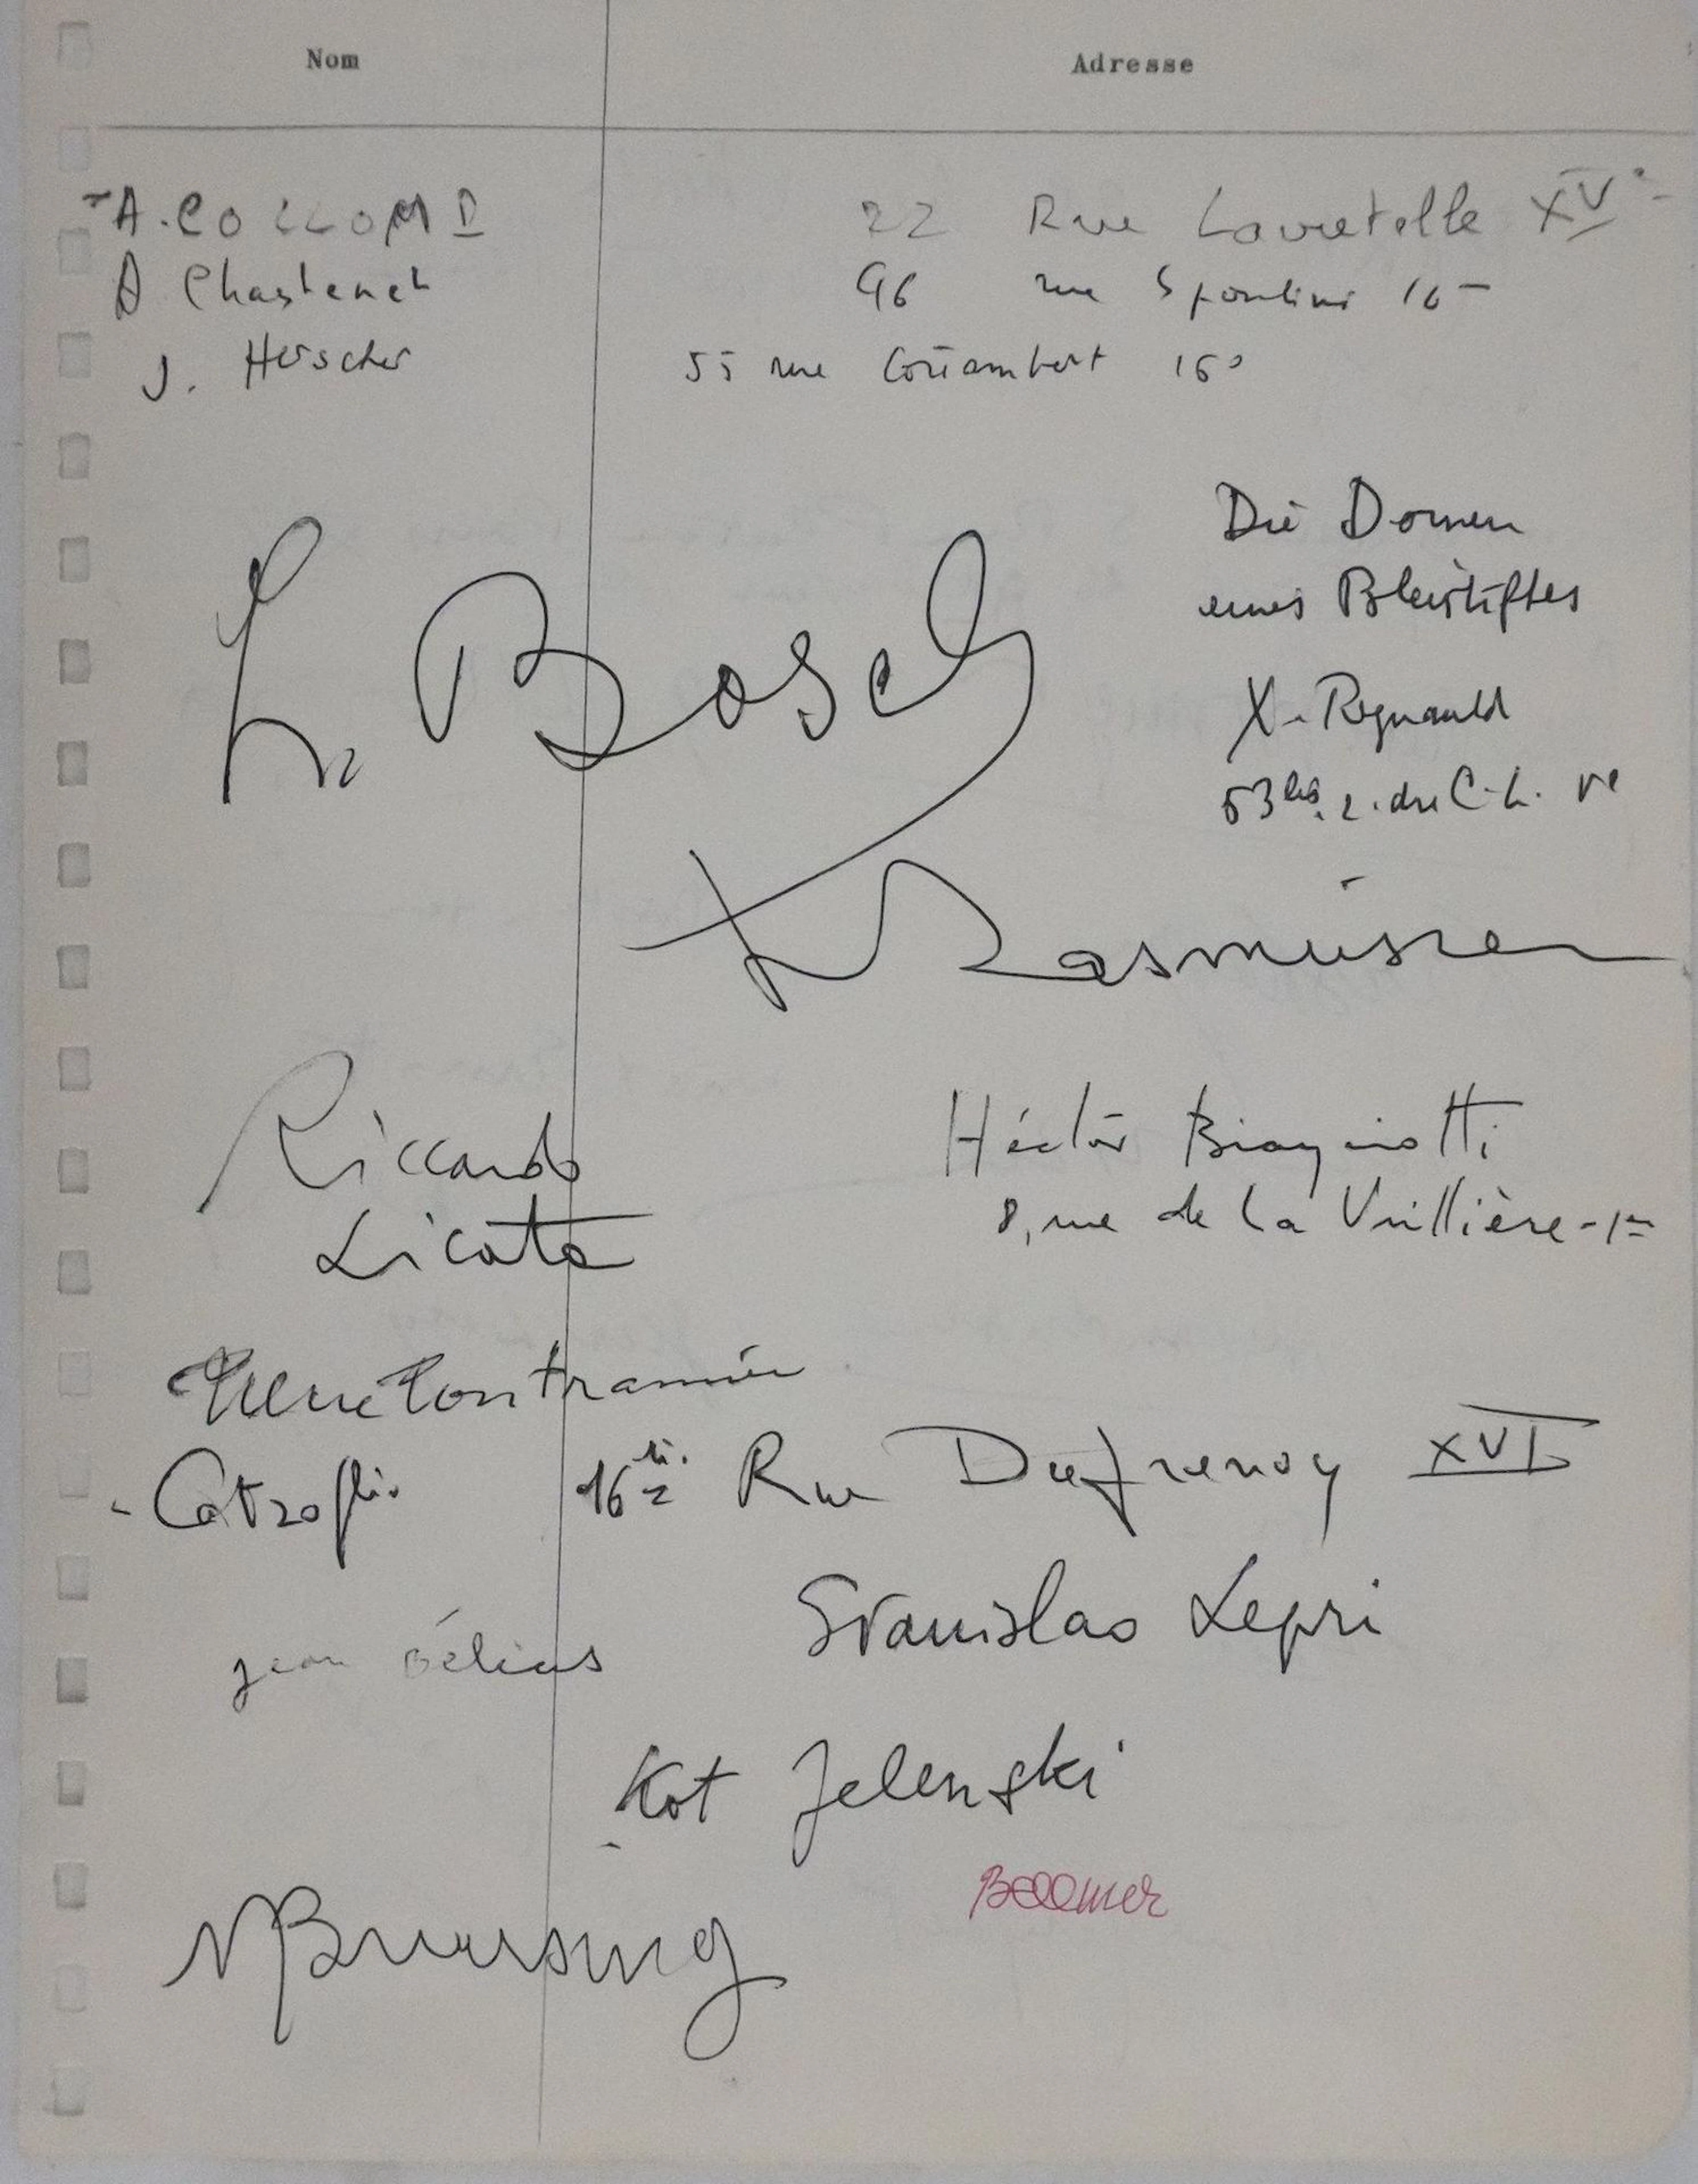 Nom Adresse
A. COLLOMB 22 Rue Lacretelle XVe
A Chastenet 96 rue Spontini 16
J. Herscher 55 rue Cortambert 16e
Die Dornen
eines Bleistiftes
Bosch
X. Regnauld
53bis. r. du C.L. Ve
Rasmussen
Riccardo
Licata
Héctor Bianciotti
8, rue de la Vrillière - 1er
16 Rue Dufrenoy XVI
Stanislao Lepri
jean Hélias
Kot Jelenski
Bellmer